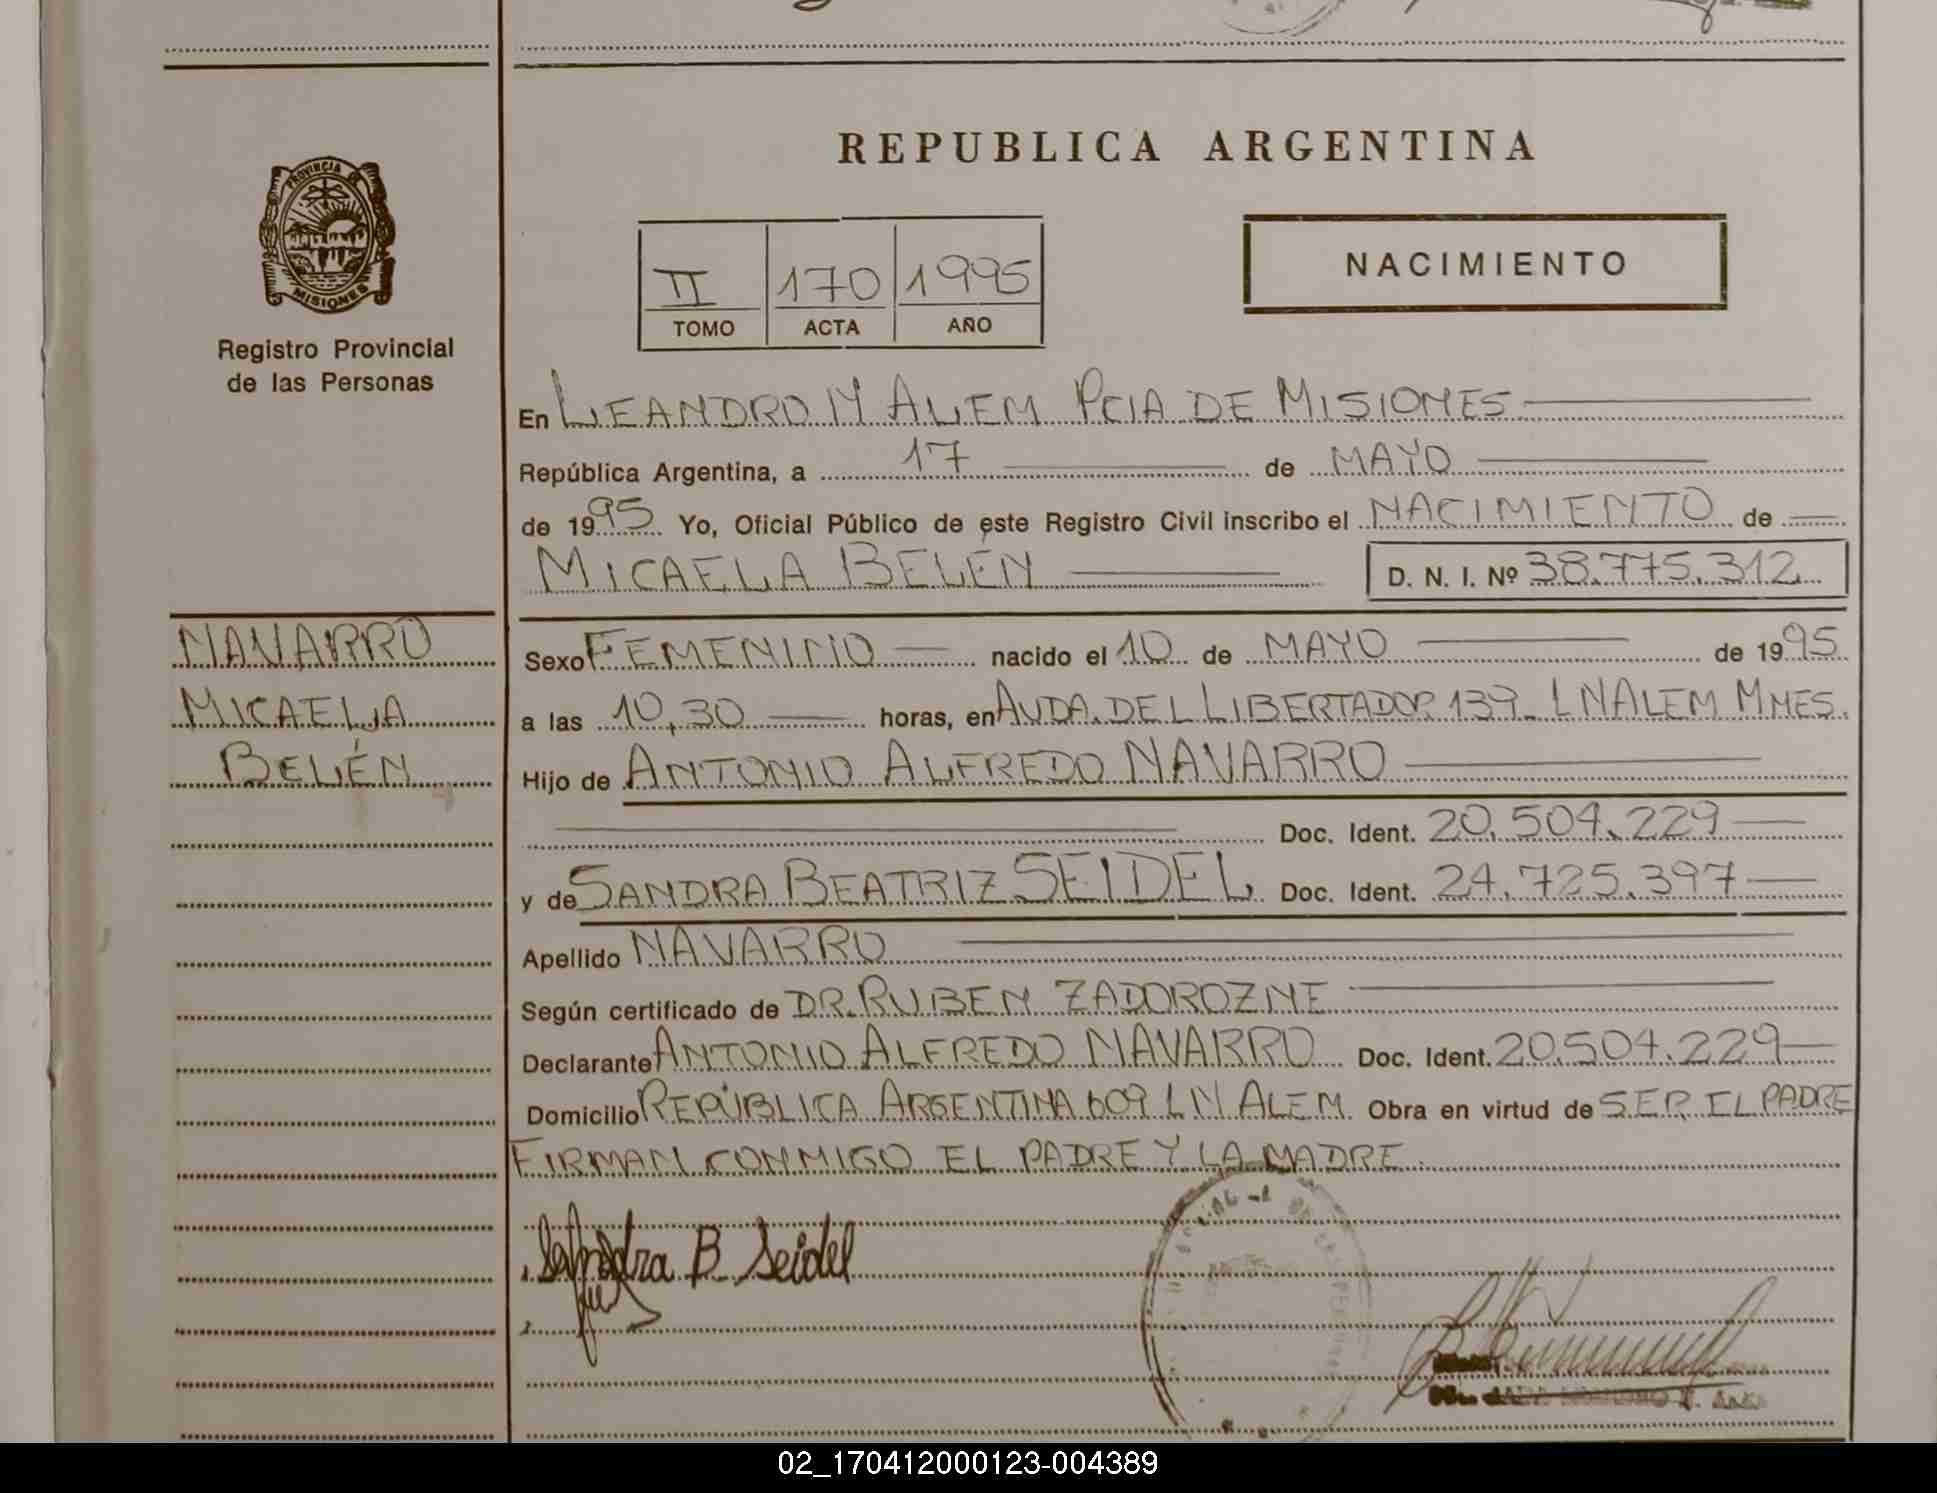 REPUBLICA ARGENTINA
PROVINCIA DE
MISIONES
Registro Provincial
de las Personas
II 170 1995
TOMO ACTA AÑO
NACIMIENTO
En LEANDRO N ALEM PCIA DE MISIONES
República Argentina, a 17 de MAYO
de 1995 Yo, Oficial Público de este Registro Civil inscribo el NACIMIENTO de
MICAELA BELÉN D. N. I. Nº 38.775.312
NAVARRO
MICAELA
BELÉN
Sexo FEMENINO nacido el 10 de MAYO de 1995
a las 10,30 horas, en AVDA. DEL LIBERTADOR 139_ L N ALEM MNES.
Hijo de ANTONIO ALFREDO NAVARRO
Doc. Ident. 20.504.229
y de SANDRA BEATRIZ SEIDEL Doc. Ident. 24.725.397
Apellido NAVARRO
Según certificado de DR. RUBEN ZADOROZNE
Declarante ANTONIO ALFREDO NAVARRO Doc. Ident. 20.504.229
Domicilio REPÚBLICA ARGENTINA 609 L N ALEM Obra en virtud de SER EL PADRE
FIRMAN CONMIGO EL PADRE Y LA MADRE
Sandra B Seidel
02_170412000123-004389